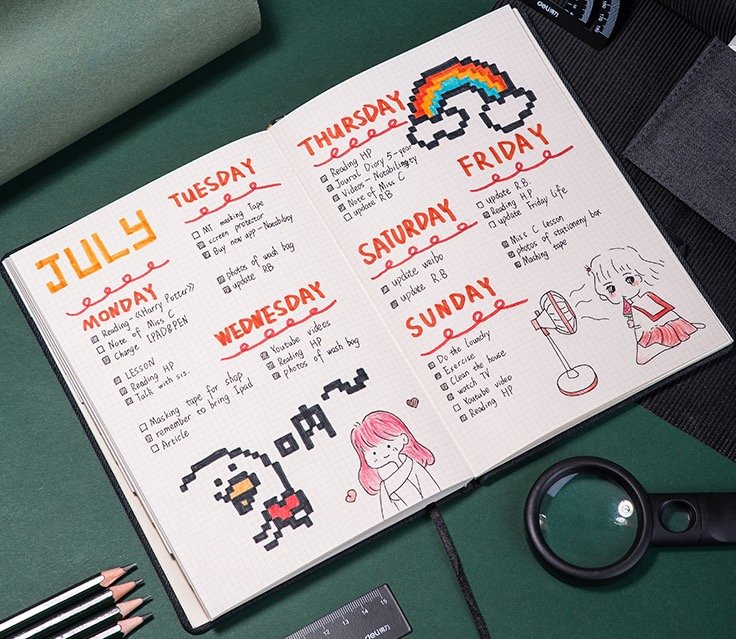 JULY
MONDAY
Reading -《Harry Potter》
Note of Miss C
Change IPAD&PEN
LESSON
Reading HP
Talk with sis.
Masking tape for shop
remember to bring Ipad
Article
TUESDAY
MT masking Tape
screen protector
Buy new app - Notability
photos of wash bag
update RB
WEDNESDAY
Youtube videos
Reading HP
photos of wash bag
THURSDAY
Reading HP
Joural Diary 5-year
Videos - Notability
Note of Miss C
update RB
FRIDAY
update R.B.
Reading HP
update Friday Life
Miss C lesson
photos of stationery box
Masking tape
SATURDAY
update weibo
update R.B
SUNDAY
Do the laundry
Exercise
Clean the house
watch TV
Youtube video
Reading HP
deli
12 13 14 15
deli